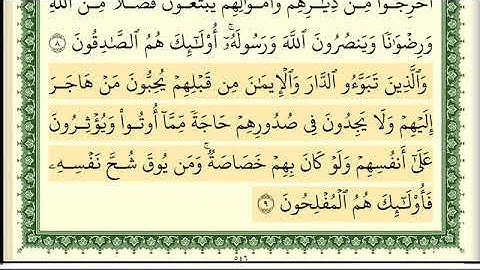 أُخۡرِجُواْ مِن دِيَٰرِهِمۡ وَأَمۡوَٰلِهِمۡ يَبۡتَغُونَ فَضۡلٗا مِّنَ ٱللَّهِ
وَرِضۡوَٰنٗا وَيَنصُرُونَ ٱللَّهَ وَرَسُولَهُۥٓۚ أُوْلَٰٓئِكَ هُمُ ٱلصَّٰدِقُونَ ٨
وَٱلَّذِينَ تَبَوَّءُو ٱلدَّارَ وَٱلۡإِيمَٰنَ مِن قَبۡلِهِمۡ يُحِبُّونَ مَنۡ هَاجَرَ
إِلَيۡهِمۡ وَلَا يَجِدُونَ فِي صُدُورِهِمۡ حَاجَةٗ مِّمَّآ أُوتُواْ وَيُؤۡثِرُونَ
عَلَىٰٓ أَنفُسِهِمۡ وَلَوۡ كَانَ بِهِمۡ خَصَاصَةٞۚ وَمَن يُوقَ شُحَّ نَفۡسِهِۦ
فَأُوْلَٰٓئِكَ هُمُ ٱلۡمُفۡلِحُونَ ٩
٥٤٦